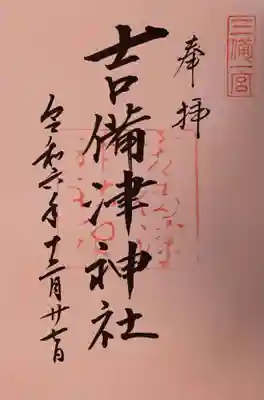 三備一宮
奉拝
吉備津神社
令和六年十二月廿七日